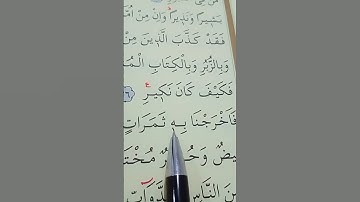 مَنْ فِي
بَشِيرًا وَنَذِيرًا وَاِنْ مِنْ اُمَّ
فَقَدْ كَذَّبَ الَّذِينَ مِنْ
وَبِالزُّبُرِ وَبِالْكِتَابِ الْمُ
فَكَيْفَ كَانَ نَكِيرِ ٦
فَاَخْرَجْنَا بِهٖ ثَمَرَاتٍ
يضٌ وَحُمْرٌ مُخْتَ
نَ النَّاسِ وَالدَّوَابِّ